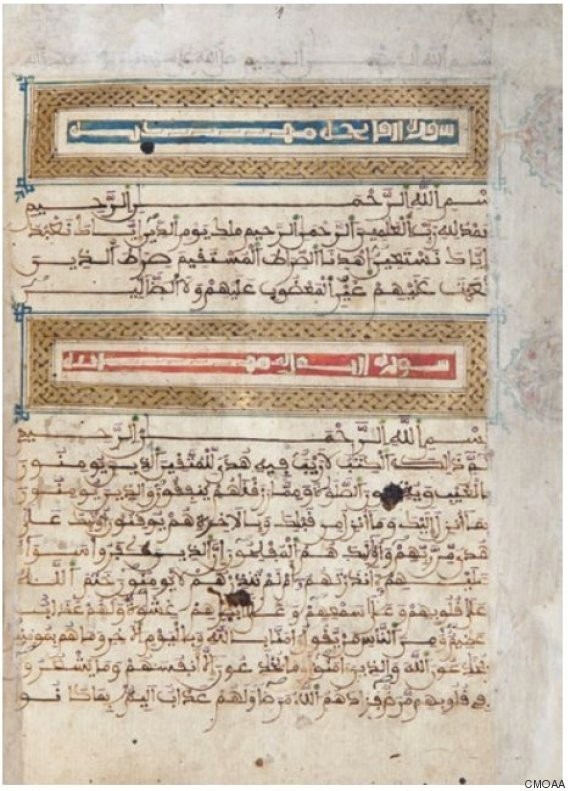 1
بسم الله الرحمن الرحيم صلى الله على
سورة
بسم الله الرحمن الرحيم
الحمد لله رب العلمين الرحمن الرحيم ملك يوم الدين اياك نعبد و
اياك نستعين اهدنا الصراط المستقيم صراط الذين
انعمت عليهم غير المغضوب عليهم ولا الضالين
سورة
بسم الله الرحمن الرحيم
الم ذلك الكتب لا ريب فيه هدى للمتقين الذين يومنون
بالغيب ويقيمون الصلوة ومما رزقنهم ينفقون والذين يومنون
بما انزل اليك وما انزل من قبلك وبالاخرة هم يوقنون اوليك على
هدى من ربهم واوليك هم المفلحون ان الذين كفروا سوا
عليهم ءانذرتهم ام لم تنذرهم لا يومنون ختم الله
على قلوبهم وعلى سمعهم وعلى ابصرهم غشوة ولهم عذاب
عظيم ومن الناس من يقول امنا بالله وباليوم الاخر وما هم بمومنين
يخدعون الله والذين امنوا وما يخدعون الا انفسهم وما يشعرون
في قلوبهم مرض فزادهم الله مرضا ولهم عذاب اليم بما كانو
CMOAA